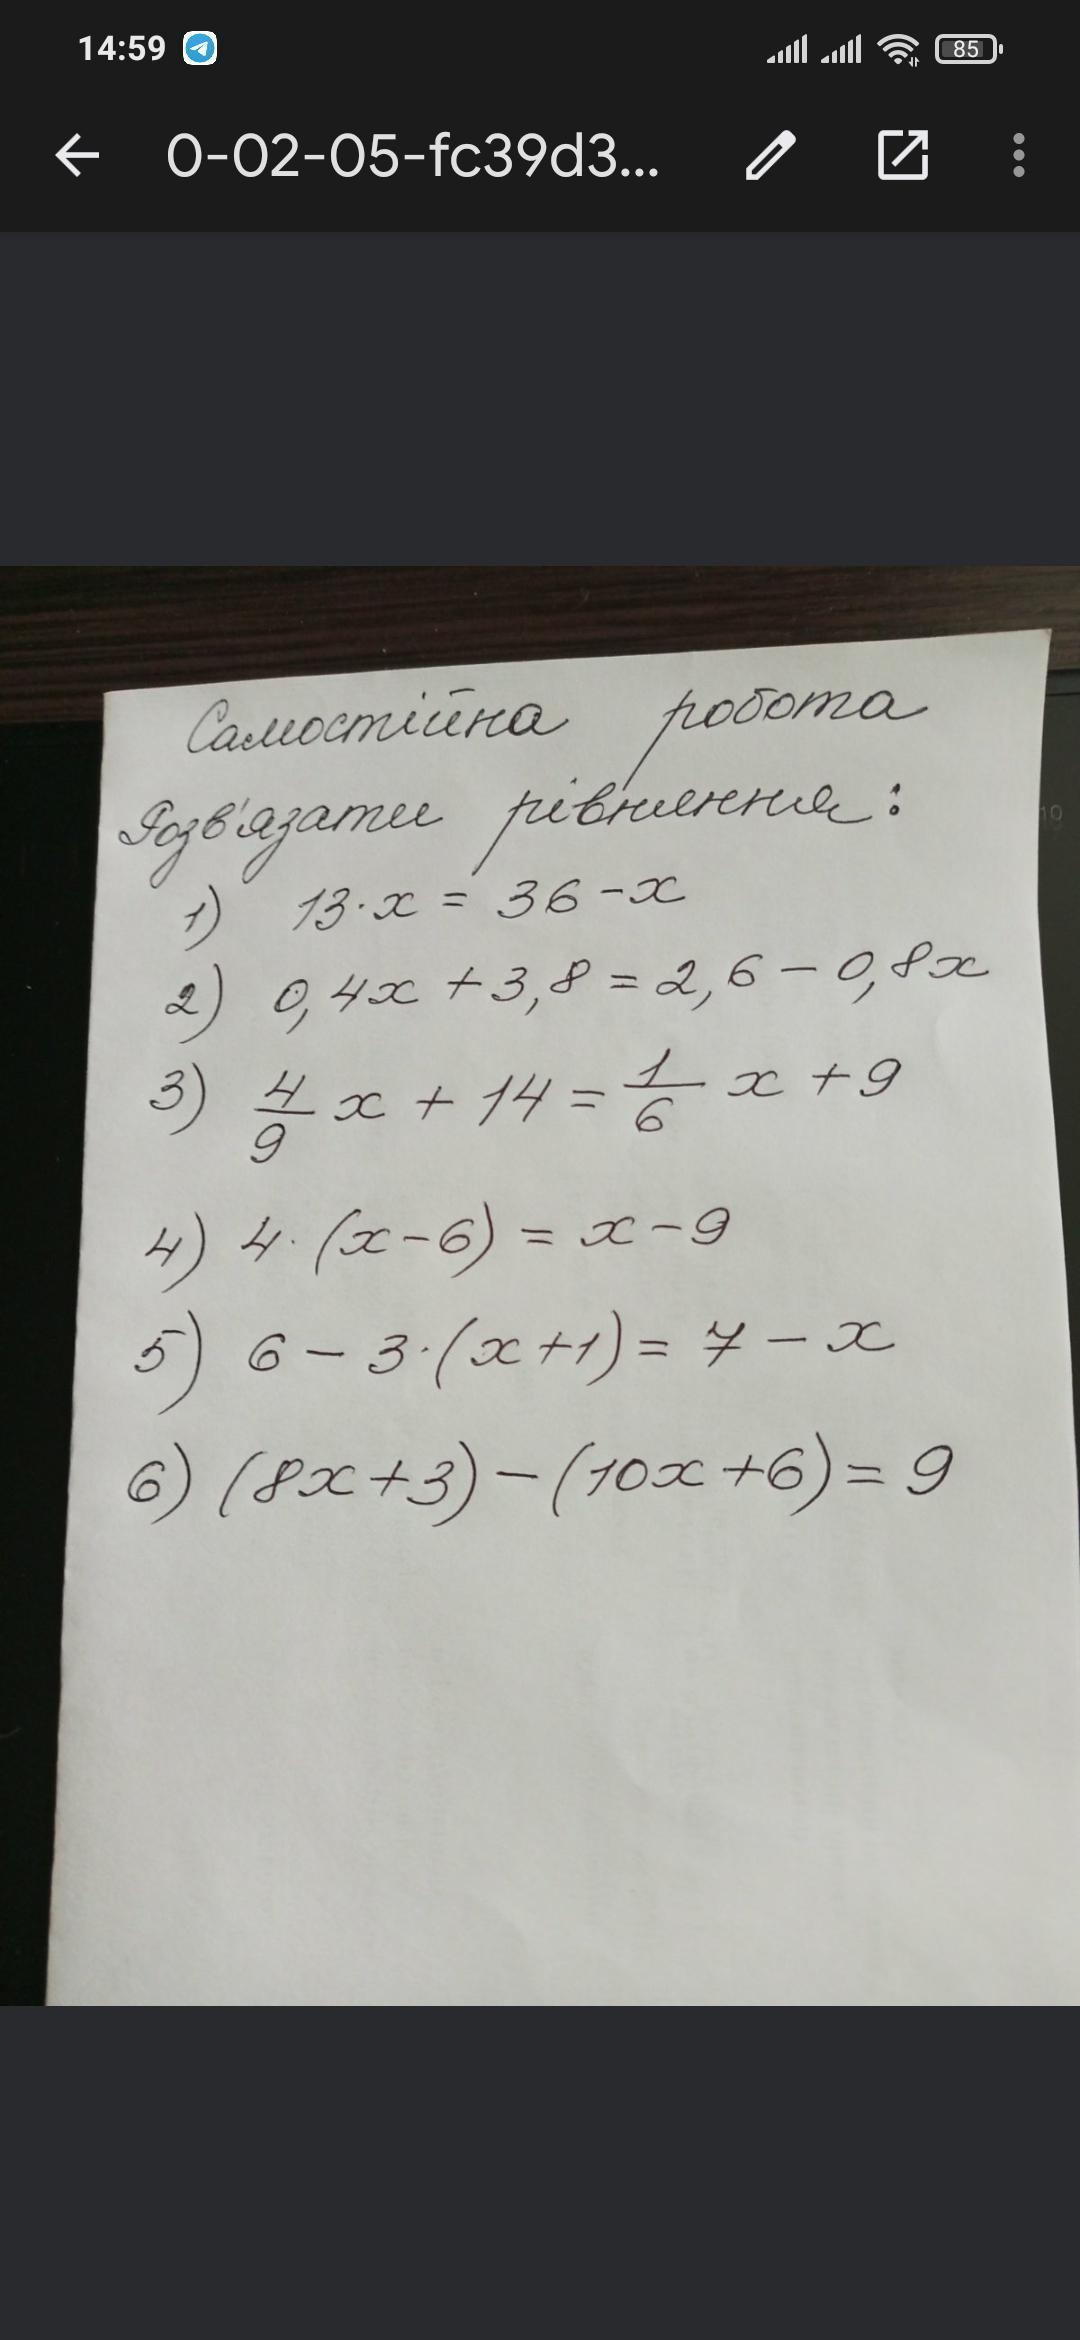 14:59
85
0-02-05-fc39d3...
Самостійна робота
Розв'язати рівняння:
1) 13·x = 36-x
2) 0,4x + 3,8 = 2,6 - 0,8x
3) 4/9 x + 14 = 1/6 x + 9
4) 4·(x-6) = x-9
5) 6 - 3·(x+1) = 7 - x
6) (8x+3) - (10x+6) = 9